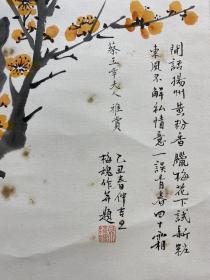 閒話揚州黃粉香臘梅花下試新粧
東風不解私情意一誤青春四十霜
蔡孟章夫人雅賞
乙丑春仲吉旦
梅魂作并題